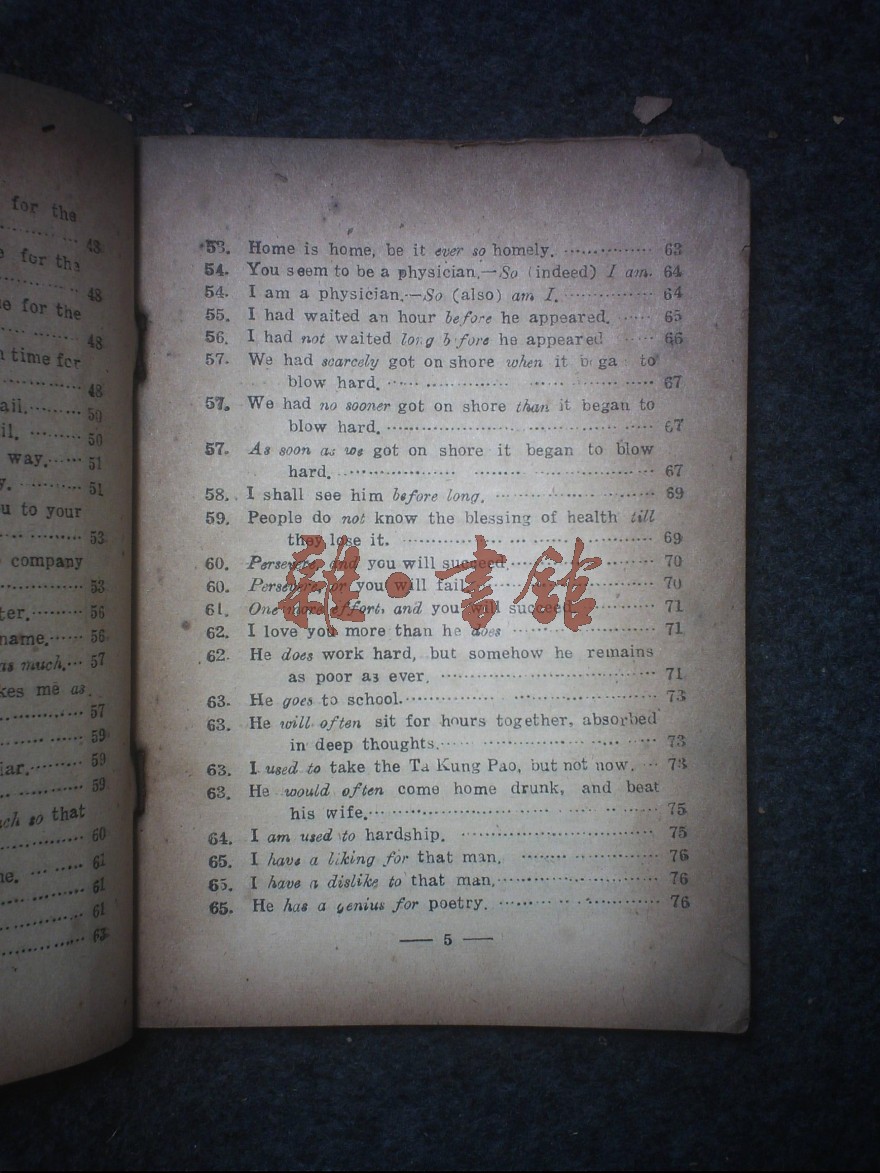 for the
48
for the
48
se for the
48
n time for
48
aii. 50
il. 50
way. 51
y. 51
u to your
53
company
53
ter. 56
name. 56
as much. 57
kes me as
57
59
iar. 59
59
uch so that
60
me. 61
61
61
63
53. Home is home, be it ever so homely. 63
54. You seem to be a physician.—So (indeed) I am. 64
54. I am a physician.—So (also) am I. 64
55. I had waited an hour before he appeared. 65
56. I had not waited long b fore he appeared 66
57. We had scarcely got on shore when it b ga to
blow hard. 67
57. We had no sooner got on shore than it began to
blow hard. 67
57. As soon as we got on shore it began to blow
hard. 67
58. I shall see him before long. 69
59. People do not know the blessing of health till
they lose it. 69
60. Persevere, and you will succeed. 70
60. Persevere or you will fail. 70
61. One more effort, and you will succeed. 71
62. I love you more than he does 71
62. He does work hard, but somehow he remains
as poor as ever. 71
63. He goes to school. 73
63. He will often sit for hours together, absorbed
in deep thoughts. 73
63. I used to take the Ta Kung Pao, but not now. 73
63. He would often come home drunk, and beat
his wife. 75
64. I am used to hardship. 75
65. I have a liking for that man. 76
65. I have a dislike to that man. 76
65. He has a genius for poetry. 76
— 5 —
雜·書館